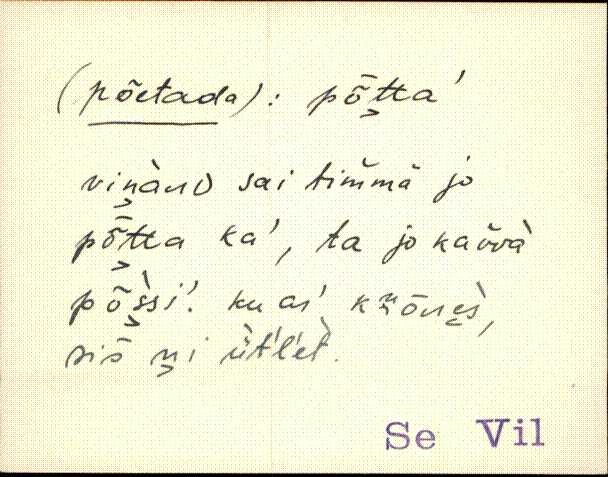 (põetada): pȭtta'
vinànD sai timmä jo
pȭtta ka', ta jo kaŭvà
põ̀ssi'. ku as' kȭnes̀,
siš ni ùt'l'et̀.
Se Vil